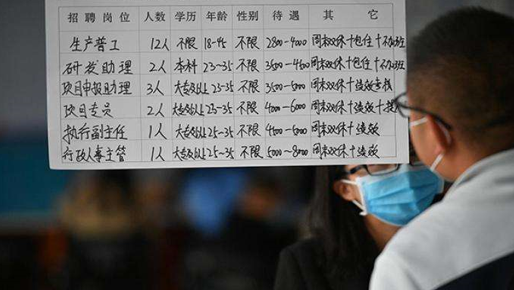 招聘岗位 人数 学历 年龄 性别 待遇 其它
生产普工 12人 不限 18-45 不限 2800-4000 周末双休+包住+不加班
研发助理 2人 本科 23-35 不限 3500-4500 周末双休+包住+不加班
项目申报助理 3人 大专及以上 25-35 不限 3500-5000 周末双休+绩效
项目专员 2人 大专及以上 25-35 不限 4000-6000 周末双休+绩效
执行副主任 1人 大专及以上 25-35 不限 4000-5000 周末双休+绩效
行政人事主管 1人 大专及以上 25-35 不限 5000-8000 周末双休+绩效